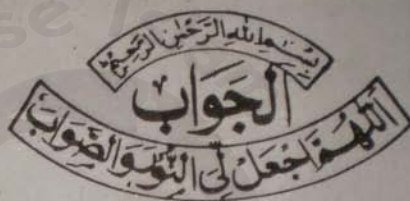 بِسْمِ اللهِ الرَّحْمٰنِ الرَّحِيْمِ
اَلْجَوَابُ
اَللّٰهُمَّ اجْعَلْ لِّي النُّوْرَ وَالصَّوَابَ